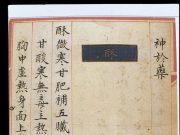 神於藥
酥
酥微寒甘肥補五臟
甘酸寒無毒主熱
胸中虛熱身面上